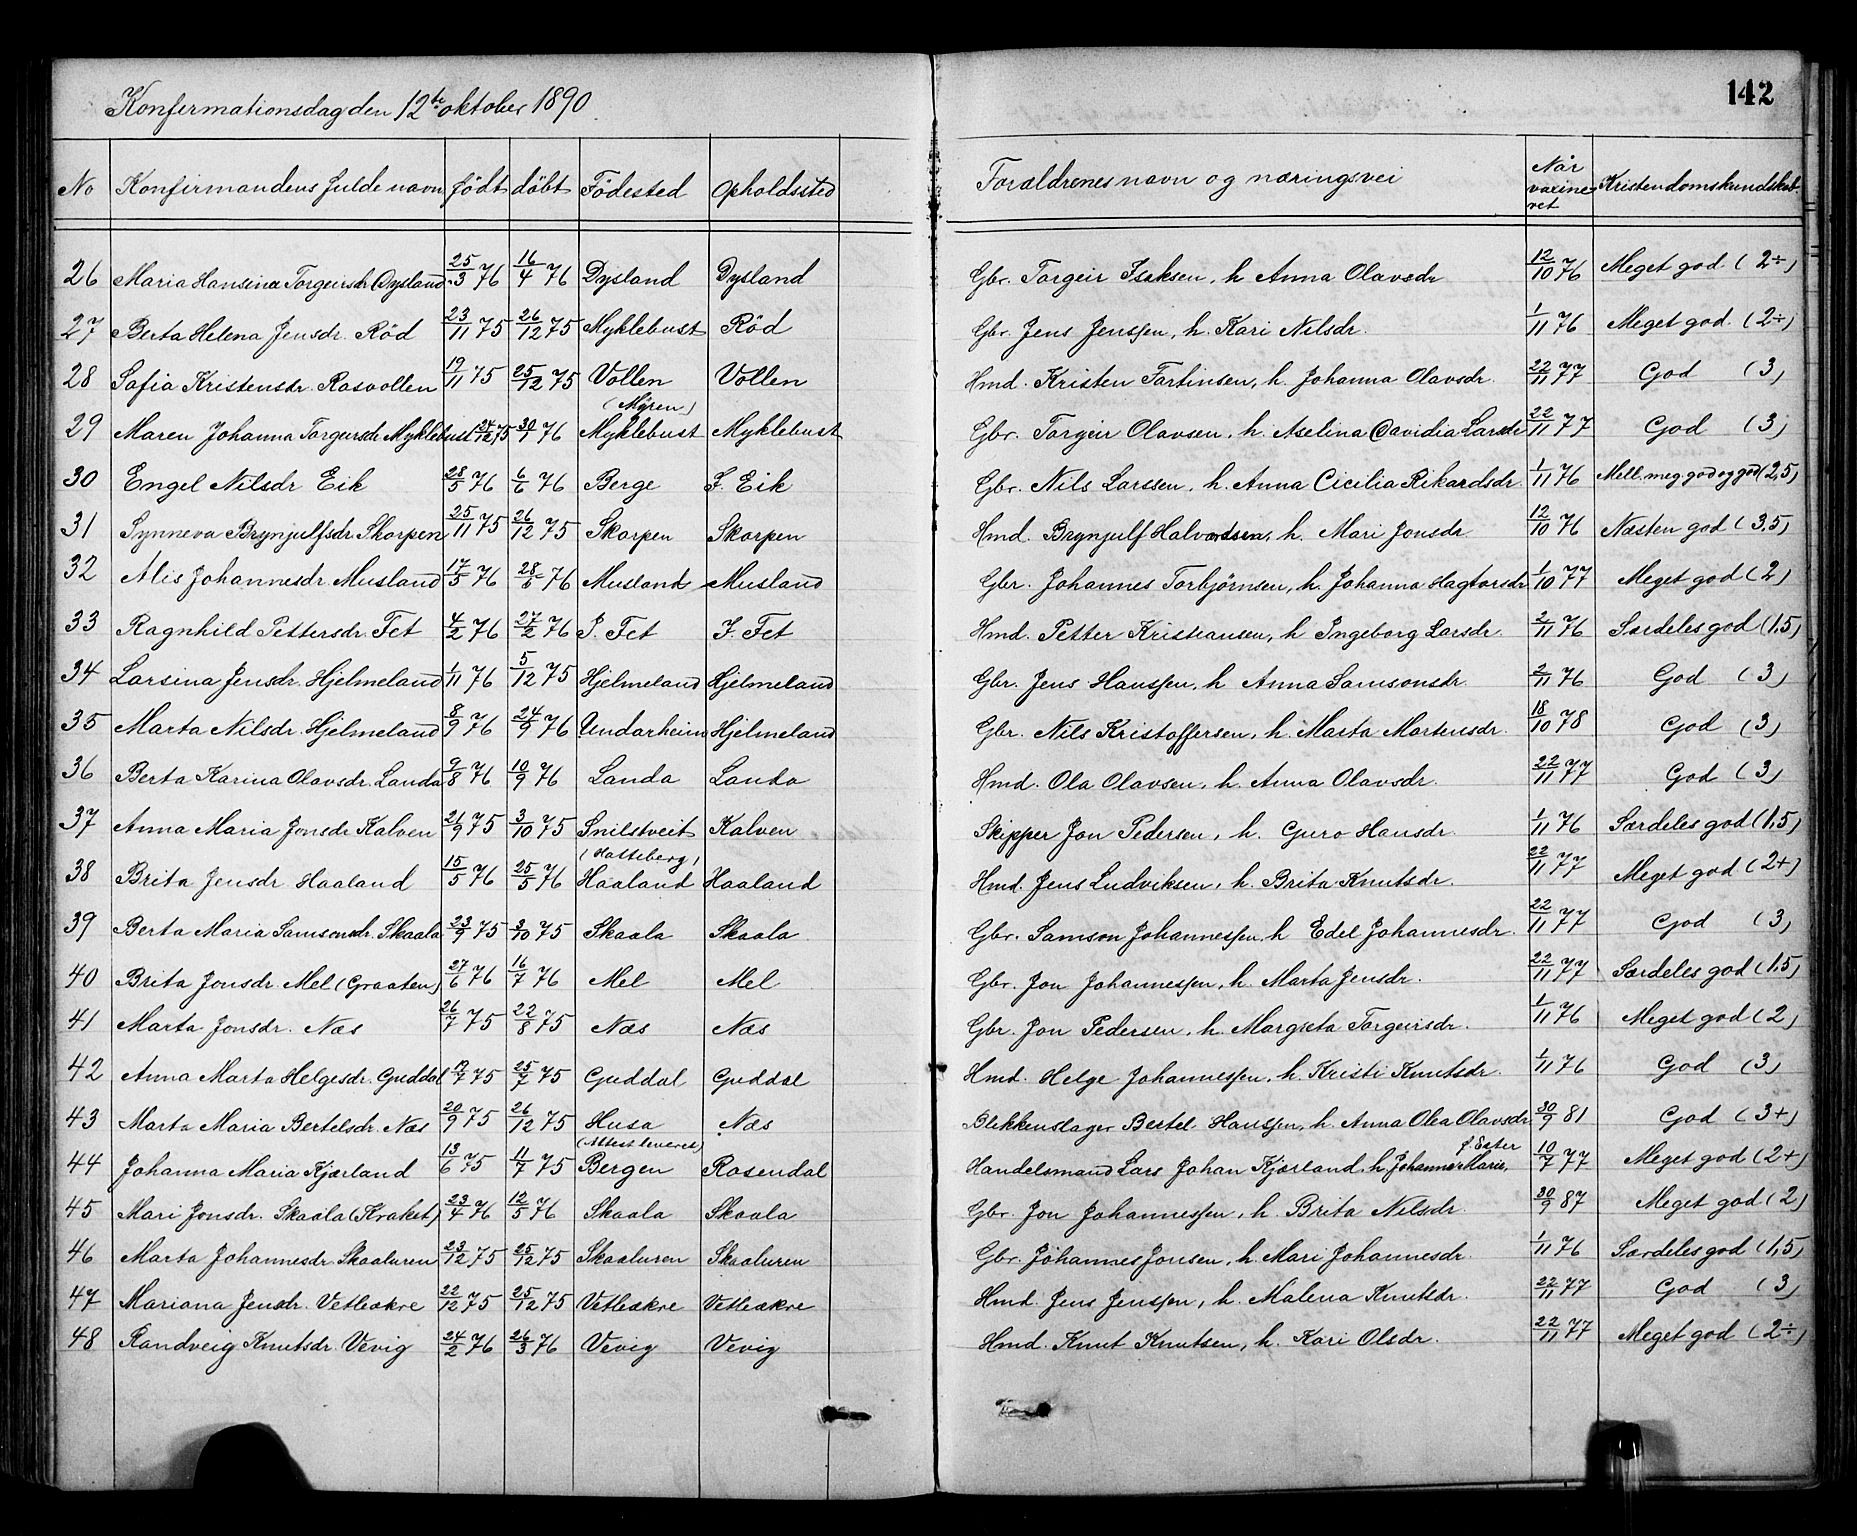 142
Konfirmationsdag den 12te oktober 1890.
No Konfirmandens fulde navn födt döbt Födested Opholdssted Forældrenes navn og næringsvei Når vaxineret Kristendomskundskab.
26 Maria Hansina Torgeirsdr. Dysland 25/3 76 16/4 76 Dysland Dysland Gbr. Torgeir Isaksen, h. Anna Olavsdr 12/10 76 Meget god. (2÷)
27 Berta Helena Jensdr. Röd 23/11 75 26/12 75 Myklebust Röd Gbr. Jens Jenssen, h. Kari Nilsdr. 1/11 76 Meget god. (2÷)
28 Sofia Kristensdr. Rasvollen 19/11 75 25/12 75 Vollen Vollen Hmd. Kristen Tartinsen, h. Johanna Olavsdr. 22/11 77 God (3)
(Mÿren)
29 Maren Johanna Torgeirsdr. Myklebust 24/12 75 30/1 76 Myklebust Myklebust Gbr. Torgeir Olavsen, h. Aselina Davidia Larsdr 22/11 77 God (3)
30 Engel Nilsdr Eik 28/5 76 6/6 76 Berge I. Eik Gbr. Nils Larssen, h. Anna Cicilia Rikardsdr. 1/11 76 Mell. meg. god og god (2,5)
31 Synneva Brynjulfsdr Skorpen 25/11 75 26/12 75 Skorpen Skorpen Hmd. Brynjulf Halvordsen, h. Mari Jonsdr 12/10 76 Næsten god (3,5)
32 Alis Johannesdr. Musland 17/5 76 28/6 76 Musland Musland Gbr. Johannes Torbjörnsen, h. Johanna Hagtorsdr 1/10 77 Meget god (2)
33 Ragnhild Pettersdr. Fet 4/2 76 27/2 76 I. Fet I. Fet Hmd. Petter Kristiansen, h Ingeborg Larsdr. 2/11 76 Særdeles god (1,5)
34 Larsina Jensdr. Hjelmeland 1/11 76 5/12 75 Hjelmeland Hjelmeland Gbr. Jens Hanssen, h Anna Samsonsdr. 2/11 76 God (3)
35 Marta Nilsdr. Hjelmeland 8/9 76 24/9 76 Undarheim Hjelmeland Gbr. Nils Kristoffersen, h. Marta Mortensdr. 18/10 78 God (3)
36 Berta Karina Olavsdr. Landa 9/8 76 10/9 76 Landa Landa Hmd. Ola Olavsen, h. Anna Olavsdr. 22/11 77 God (3)
37 Anna Maria Jonsdr. Kalven 21/9 75 3/10 75 Snilstveit Kalven Skipper Jon Pedersen, h. Guro Hansdr. 1/11 76 Særdeles god (1,5)
(Hatteberg)
38 Brita Jensdr. Haaland 15/5 76 25/5 76 Haaland Haaland Hmd. Jens Ludviksen, h. Brita Knutsdr. 22/11 77 Meget god (2+)
39 Berta Maria Samsonsdr. Skaala 23/9 75 3/10 75 Skaala Skaala Gbr. Samson Johannessen, h Edel Johannesdr. 22/11 77 God (3)
40 Brita Jonsdr. Mel (Graaten) 27/6 76 16/7 76 Mel Mel Gbr. Jon Johannessen, h. Marta Jensdr. 22/11 77 Særdeles god (1,5)
41 Marta Jonsdr. Næs 26/7 75 22/8 75 Næs Næs Gbr. Jon Pedersen, h. Margreta Torgeirsdr. 1/11 76 Meget god (2)
42 Anna Marta Helgesdr. Guddal /7 75 25/7 75 Guddal Guddal Hmd. Helge Johannessen, h. Kristi Knutsdr. 1/11 76 God (3)
43 Marta Maria Bertelsdr. Næs 20/9 75 26/12 75 Husa Næs Blikkenslager Bertel Hanssen, h Anna Olea Olavsdr 30/9 81 God (3+)
(Attest leveret) f. Ester
44 Johanna Maria Kjærland 13/6 75 11/7 75 Bergen Rosendal Handelsmand Lars Johan Kjærland, h Johanna Marie, 10/7 77 Meget god (2+)
45 Mari Jonsdr. Skaala (Kraket) 23/4 76 12/5 76 Skaala Skaala Gbr. Jon Johannessen, h. Brita Nilsdr. 30/9 87 Meget god (2)
46 Marta Johannesdr. Skaaluren 23/12 75 25/12 75 Skaaluren Skaaluren Gbr. Johannes Jonsen, h. Mari Johannesdr. 1/11 76 Særdeles god (1,5)
47 Mariana Jensdr. Vetleakre 22/12 75 25/12 75 Vetleakre Vetleakre Hmd. Jens Jenssen, h. Malena Knutsdr. 22/11 77 God (3)
48 Randveig Knutsdr. Vevig 24/2 76 26/3 76 Vevig Vevig Hmd. Knut Knutsen, h. Kari Olsdr. 22/11 77 Meget god (2÷)